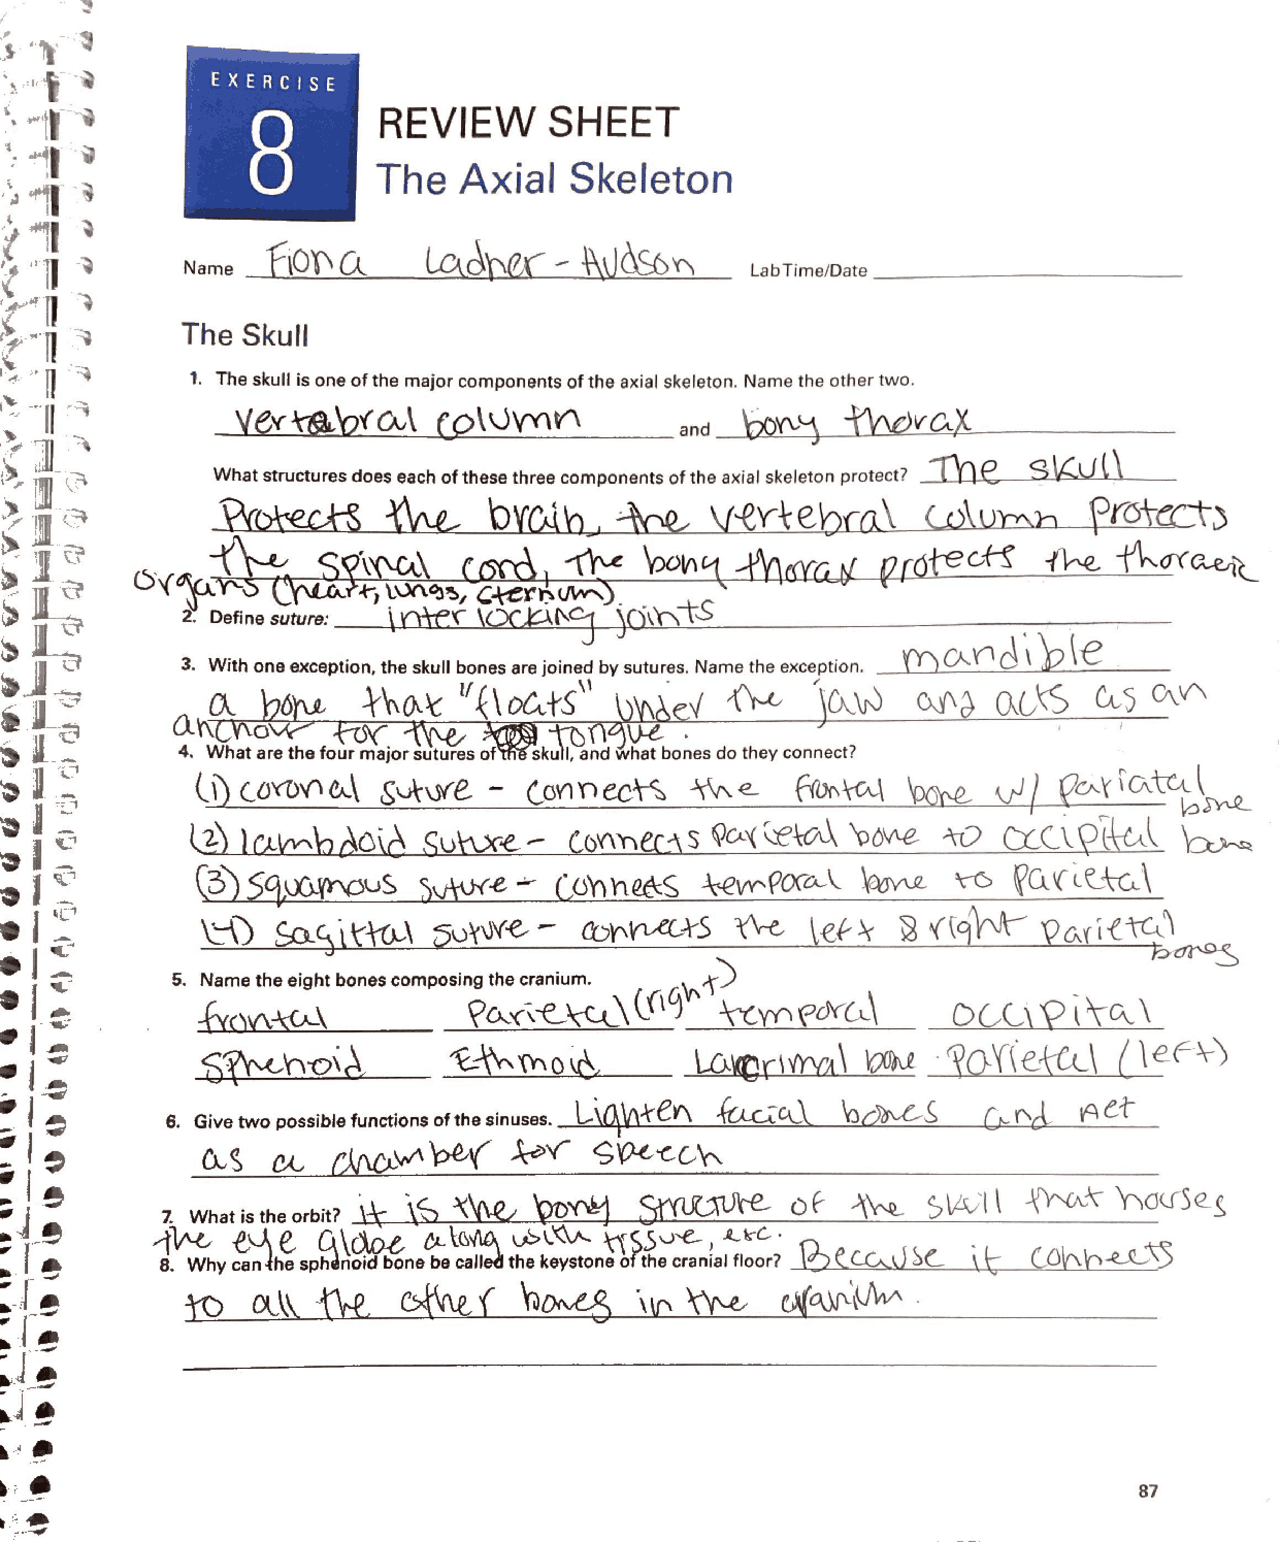 EXERCISE
8
REVIEW SHEET
The Axial Skeleton
Name Fiona Ladner-Hudson Lab Time/Date
The Skull
1. The skull is one of the major components of the axial skeleton. Name the other two.
vertebral column and bony thorax
What structures does each of these three components of the axial skeleton protect? The skull
Protects the brain, the vertebral column protects
the spinal cord, The bony thorax protects the thoracic
organs (heart, lungs, sternum).
2. Define suture: interlocking joints
3. With one exception, the skull bones are joined by sutures. Name the exception. mandible
a bone that "floats" under the jaw and acts as an
anchor for the tongue.
4. What are the four major sutures of the skull, and what bones do they connect?
(1) coronal suture - connects the frontal bone w/ pariatal
bone
(2) lambdoid suture - connects parietal bone to occipital bone
(3) squamous suture - connects temporal bone to parietal
(4) sagittal suture - connects the left & right parietal
bones
5. Name the eight bones composing the cranium.
frontal Parietal (right) temporal occipital
Sphenoid Ethmoid Lacrimal bone Parietal (left)
6. Give two possible functions of the sinuses. Lighten facial bones and Act
as a chamber for speech
7. What is the orbit? it is the bony structure of the skull that houses
the eye globe along with tissue, etc.
8. Why can the sphenoid bone be called the keystone of the cranial floor? Because it connects
to all the other bones in the cranium.
87